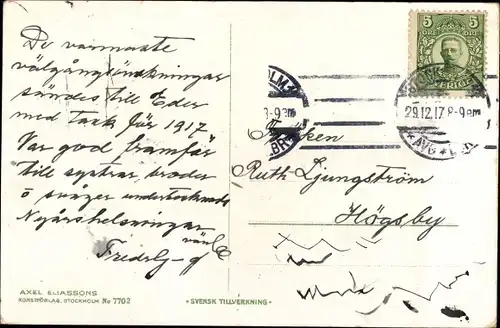 De varmaste
välgångsönskningar
sändes till Eder
med tack för 1917
Var god framför
till systrar, broder
o svåger
Nyårshelsningar
5 5
ÖRE ÖRE
SVERIGE
29.12.17. 8-9 EM
Fröken
Ruth Ljungström
Högsby
AXEL ELIASSONS
KONSTFÖRLAG, STOCKHOLM No 7702
• SVENSK TILLVERKNING •